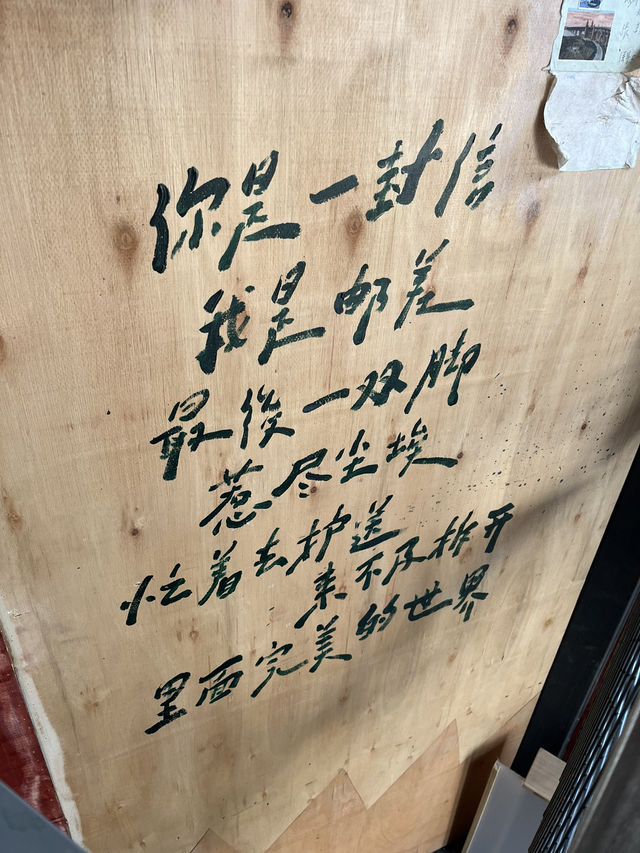 你是一封信
我是邮差
最後一双脚
惹尽尘埃
忙着去护送
来不及拆开
里面完美的世界